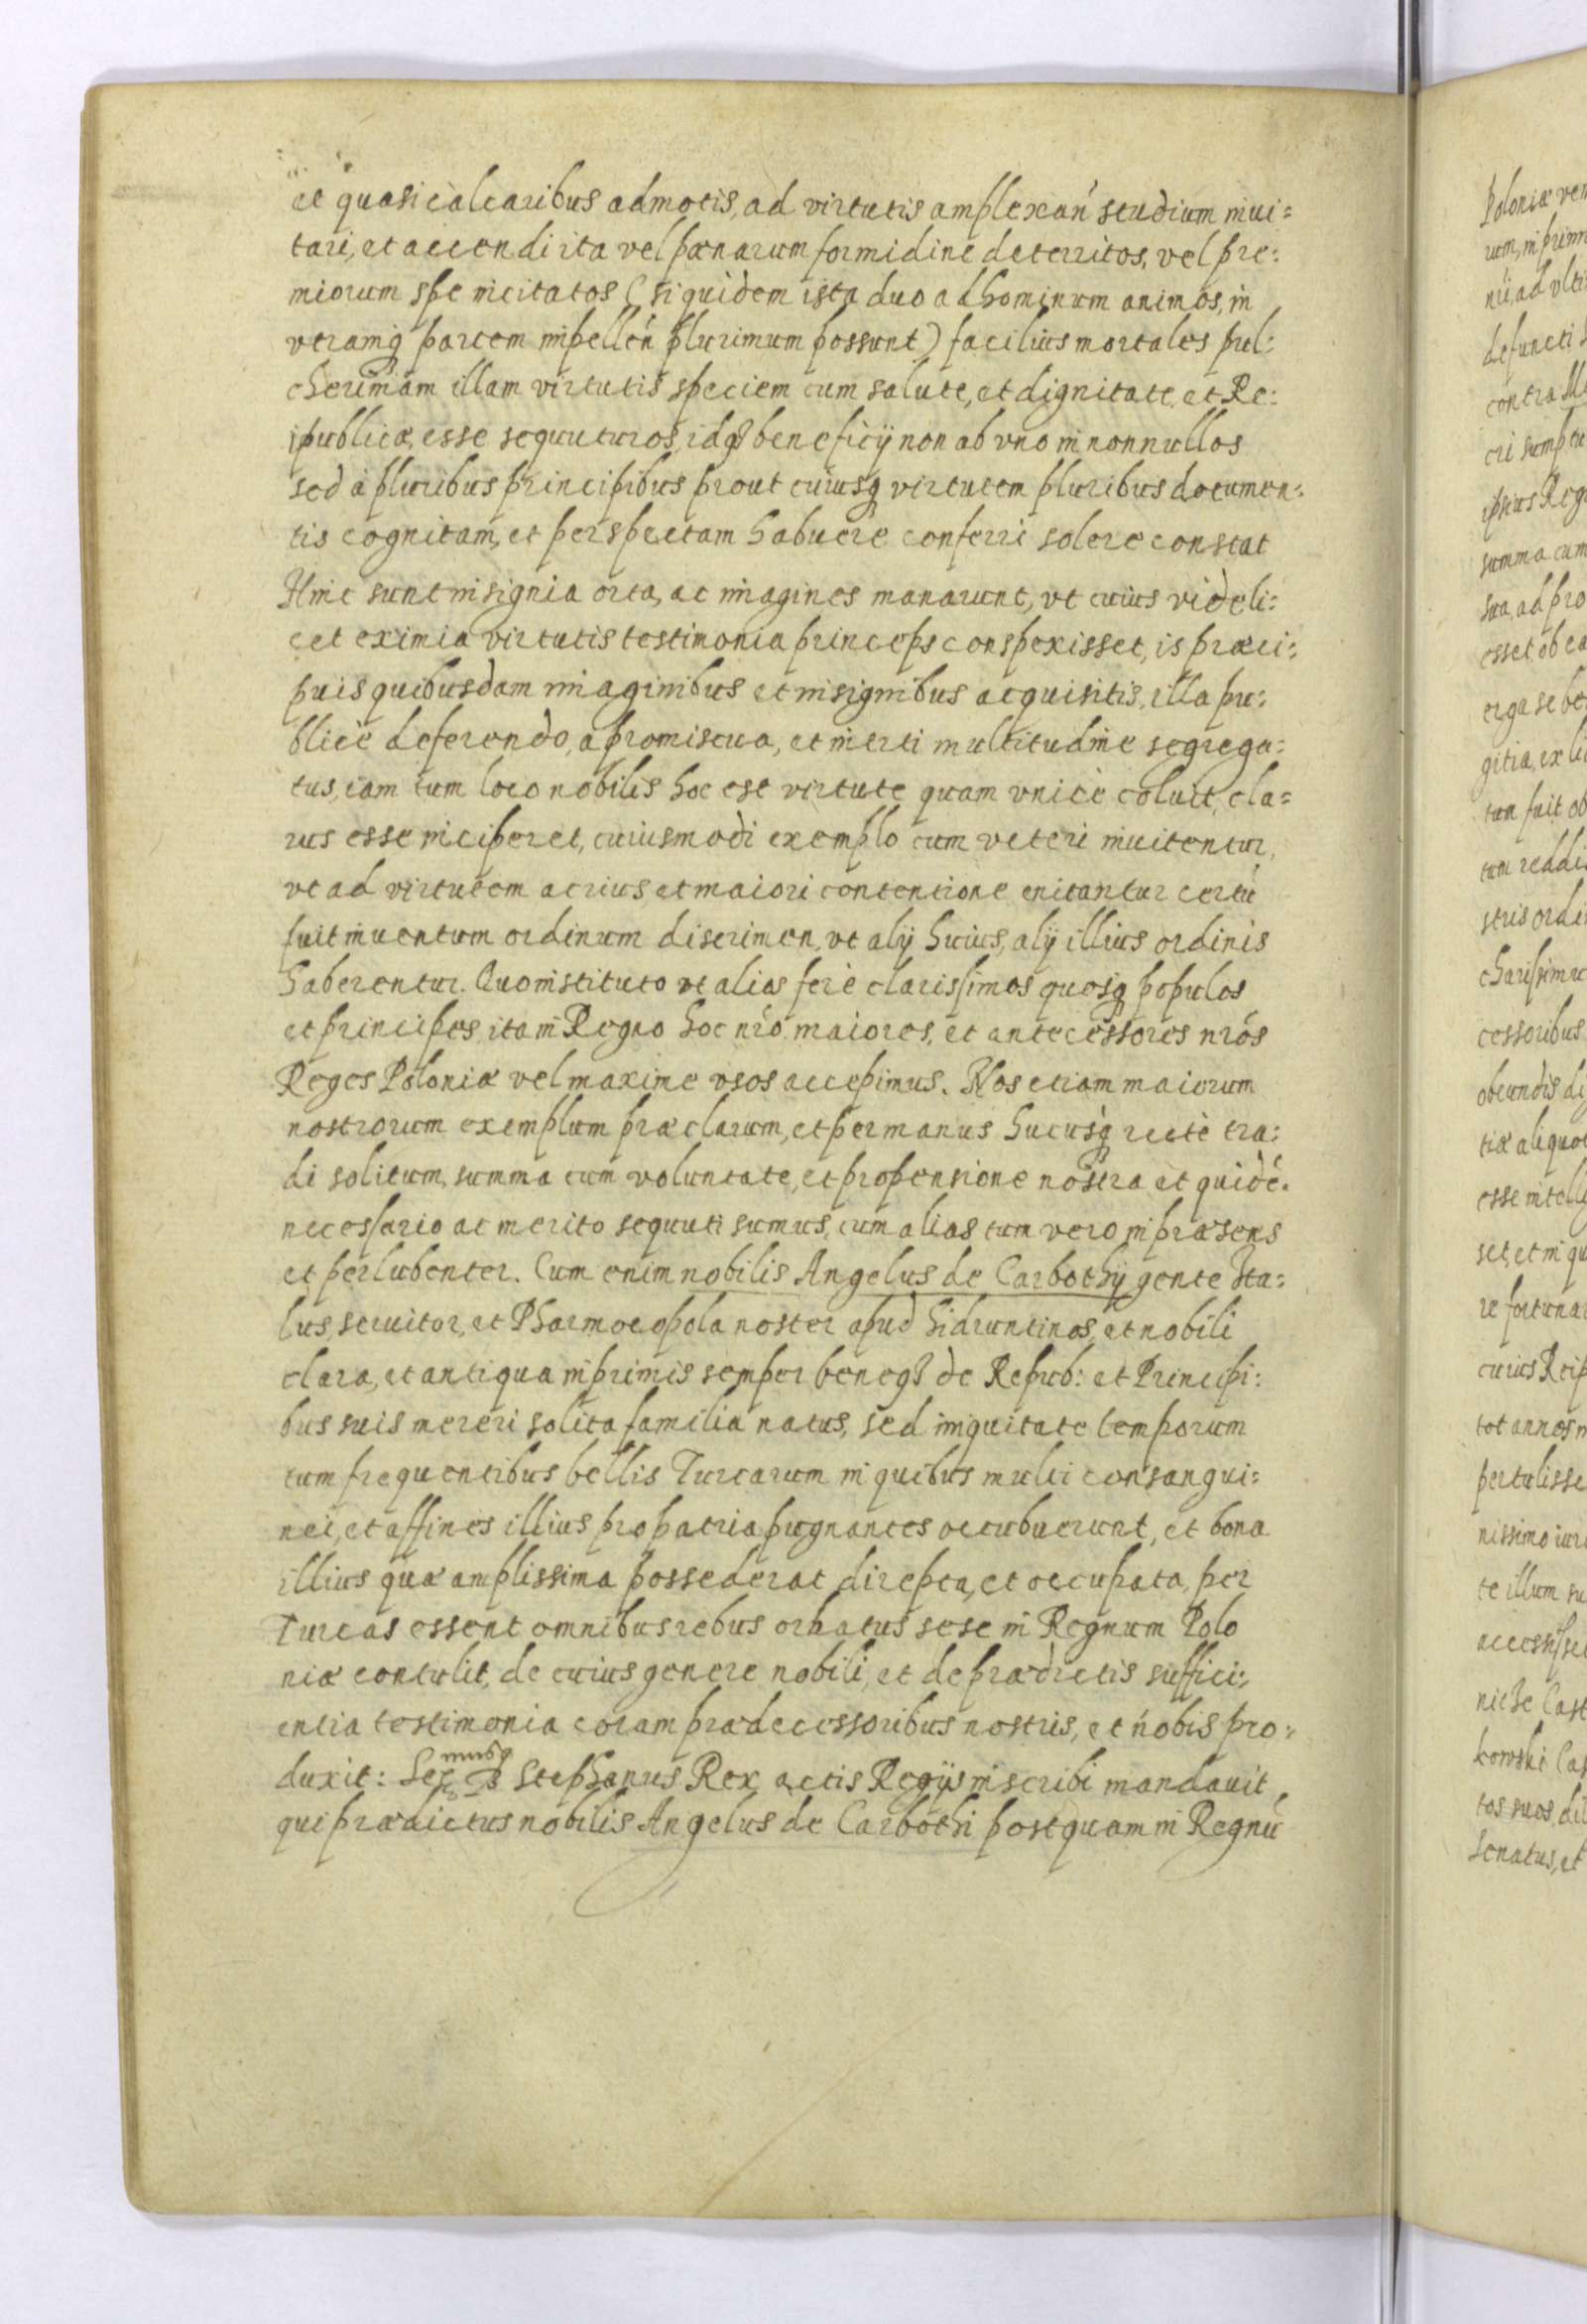 et quasi calcaribus admotis, ad virtutis amplexań studium inui=
tari, et accendi ita vel pænarum formidine deterritos, vel præ:
miorum spe incitatos (siquidem ista duo ad hominum animos, in
vtramq partem impelleń plurimum possunt) facilius mortales pul:
cherimam illam virtutis speciem cum salute, et dignitate et Re:
ipublicæ, esse sequuturos, idq beneficij non ab vno in nonnullos
sed a pluribus principibus prout cuiusq virtutem pluribus documen:
tis cognitam, et perspectam habuere conferri solere constat
Hinc sunt insignia orta, ac imagines manarunt, vt cuius videli:
cet eximia virtutis testimonia princeps conspexisset, is præci:
puis quibusdam imaginibus et insignibus acquisitis, illa pu:
blicè deferendo, a promiscua, et inerti multitudine segrega:
tus, iam tum loco nobilis hoc est virtute quam vnicè coluit, cla=
rus esse inciperet, cuiusmodi exemplo cum veteri inuitentur,
vt ad virtutem acrius et maiori contentione enitantur certũ
fuit inuentum ordinum discrimen, vt alij huius, alij illius ordinis
haberentur. Quo instituto vt alias ferè clarissimos quosq populos
et principes, ita in Regno hoc nŕo maiores, et antecessores nŕos
Reges Poloniæ vel maxime vsos accepimus. Nos etiam maiorum
nostrorum exemplum præclarum, et per manus hucusq rectè tra:
di solitum, summa cum voluntate, et propensione nostra et quidẽ
necessario ac merito sequuti sumus, cum alias tum vero in præsens
et perlubenter. Cum enim nobilis Angelus de Carbothij gente Ita:
lus, seruitor, et Pharmocopola noster apud hidruntinos, et nobili
clara, et antiqua inprimis semper beneq de Repub: et Principi:
bus suis mereri solita familia natus, sed iniquitate temporum
tum frequentibus bellis Turcarum in quibus multi consangui:
nei, et affines illius pro patria pugnantes occubuerunt, et bona
illius quæ amplissima possederat direpta, et occupata, per
Turcas essent omnibus rebus orbatus sese in Regnum Polo
niæ contulit, de cuius genere nobili, et de prædictis suffici:
entia testimonia coram prædecessoribus nostris, et nobis pro:
duxit: Stephanus Rex actis Regijs inscribi mandauit,
qui prædictus nobilis Angelus de Carbothi postquam in Regnũ